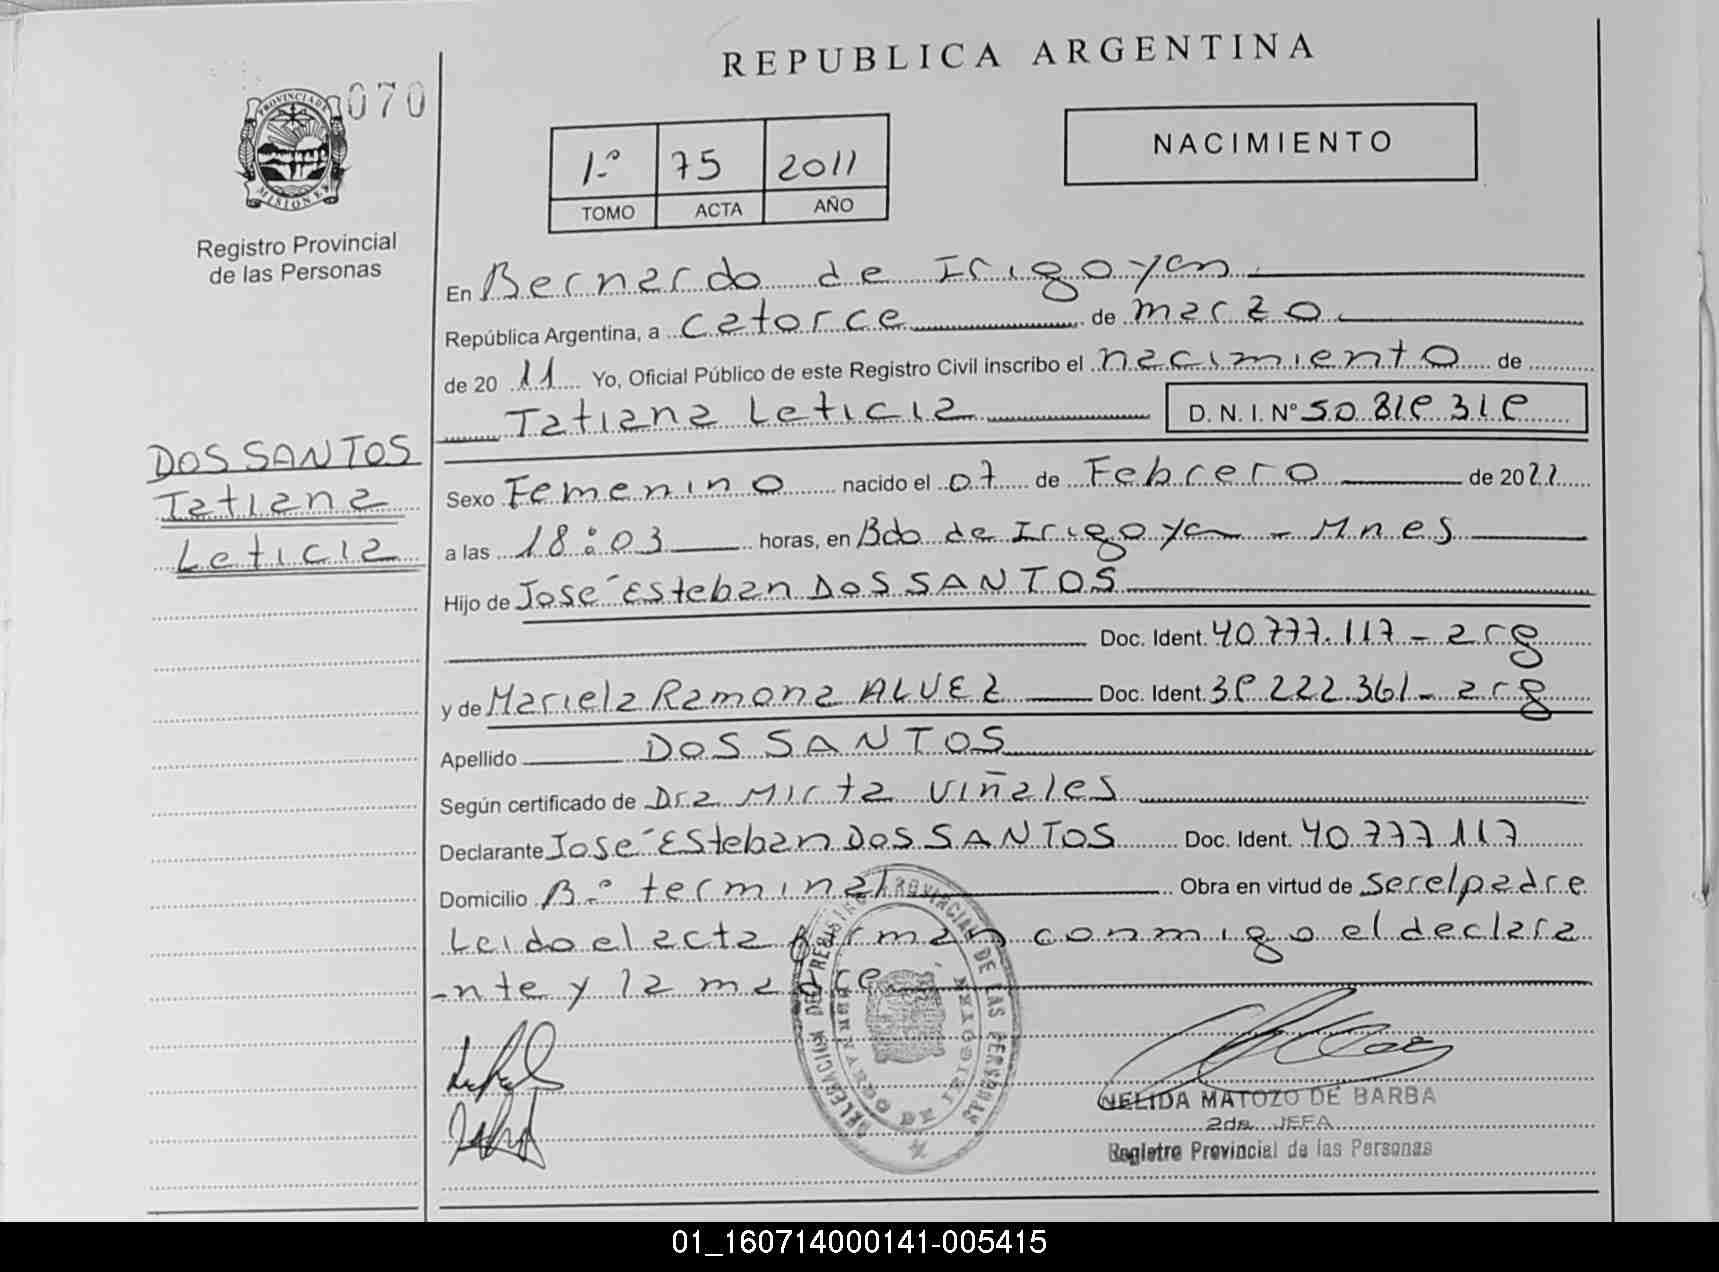 REPUBLICA ARGENTINA
070
PROVINCIA DE
MISIONES
Registro Provincial
de las Personas
1.º 75 2011
TOMO ACTA AÑO
NACIMIENTO
En Bernardo de Irigoyen
República Argentina, a catorce de marzo
de 2011 Yo, Oficial Público de este Registro Civil inscribo el nacimiento de
Tatiana Leticia D. N. I. Nº 50.819.319
DOS SANTOS
Tatiana
Leticia
Sexo Femenino nacido el 07 de Febrero de 2011
a las 18:03 horas, en Bdo de Irigoyen - Mnes
Hijo de José Esteban DOS SANTOS
Doc. Ident. 40.777.117 - arg
y de Mariela Ramona ALVEZ Doc. Ident. 39.222.361 - arg
Apellido DOS SANTOS
Según certificado de Dra Mirta Viñales
Declarante José Esteban DOS SANTOS Doc. Ident. 40.777.117
Domicilio B.º terminal Obra en virtud de ser el padre
Leido el acta firman conmigo el declara
-nte y la madre
DELEGACION DE REGISTRO PROVINCIAL DE LAS PERSONAS
BERNARDO DE IRIGOYEN
NELIDA MATOZO DE BARBA
2da. JEFA
Registro Provincial de las Personas
01_160714000141-005415